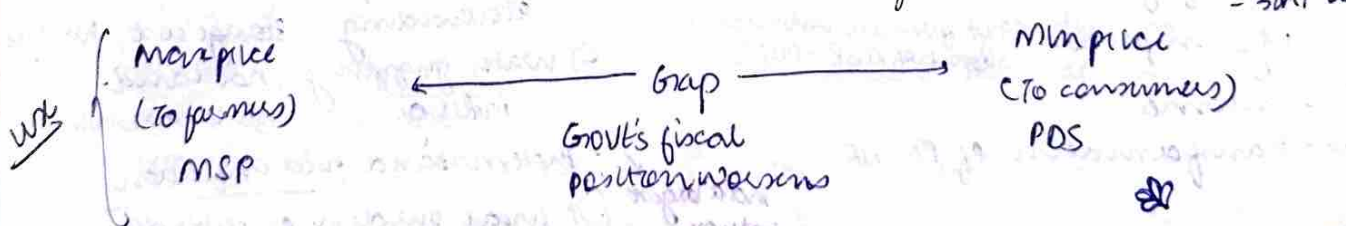 Max price
(To farmers)
MSP
Gap
Govt's fiscal
position worsens
Min price
(To consumers)
PDS